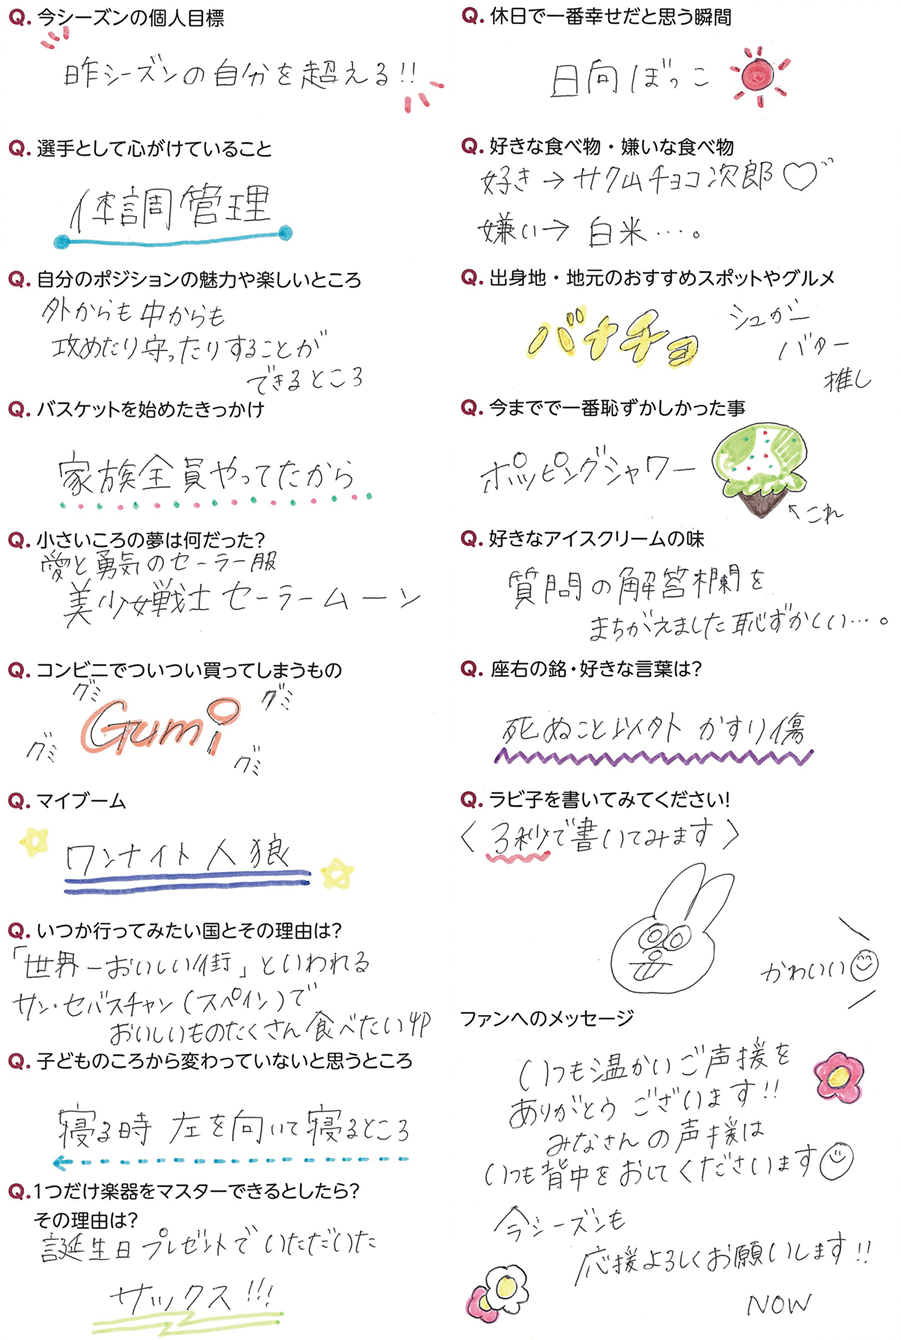 Q. 今シーズンの個人目標
昨シーズンの自分を超える!!
Q. 選手として心がけていること
体調管理
Q. 自分のポジションの魅力や楽しいところ
外からも中からも
攻めたり守ったりすることが
できるところ
Q. バスケットを始めたきっかけ
家族全員やってたから
Q. 小さいころの夢は何だった?
愛と勇気のセーラー服
美少女戦士セーラームーン
Q. コンビニでついつい買ってしまうもの
グミ
グミ
Gumi
グミ
グミ
Q. マイブーム
ワンナイト人狼
Q. いつか行ってみたい国とその理由は?
「世界一おいしい街」といわれる
サン・セバスチャン(スペイン)で
おいしいものたくさん食べたい
Q. 子どものころから変わっていないと思うところ
寝る時 左を向いて寝るところ
Q. 1つだけ楽器をマスターできるとしたら?
その理由は?
誕生日プレゼントでいただいた
サックス!!!
Q. 休日で一番幸せだと思う瞬間
日向ぼっこ
Q. 好きな食べ物・嫌いな食べ物
好き→サク山チョコ次郎♡
嫌い→ 白米…。
Q. 出身地・地元のおすすめスポットやグルメ
バナチョ
シュガー
バター
推し
Q. 今までで一番恥ずかしかった事
ポッピングシャワー
←これ
Q. 好きなアイスクリームの味
質問の解答欄を
まちがえました恥ずかしい…。
Q. 座右の銘・好きな言葉は?
死ぬこと以外かすり傷
Q. ラビ子を書いてみてください!
〈3秒で書いてみます〉
かわいい
ファンへのメッセージ
いつも温かいご声援を
ありがとうございます!!
みなさんの声援は
いつも背中をおしてくださいます
今シーズンも
応援よろしくお願いします!!
NOW